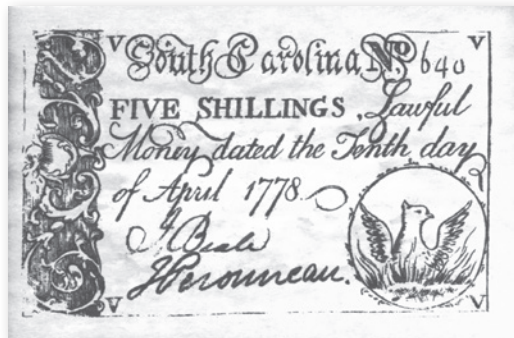 V South Carolina No. 640 V
FIVE SHILLINGS, Lawful
Money dated the Tenth day
of April 1778
J Beale
V V